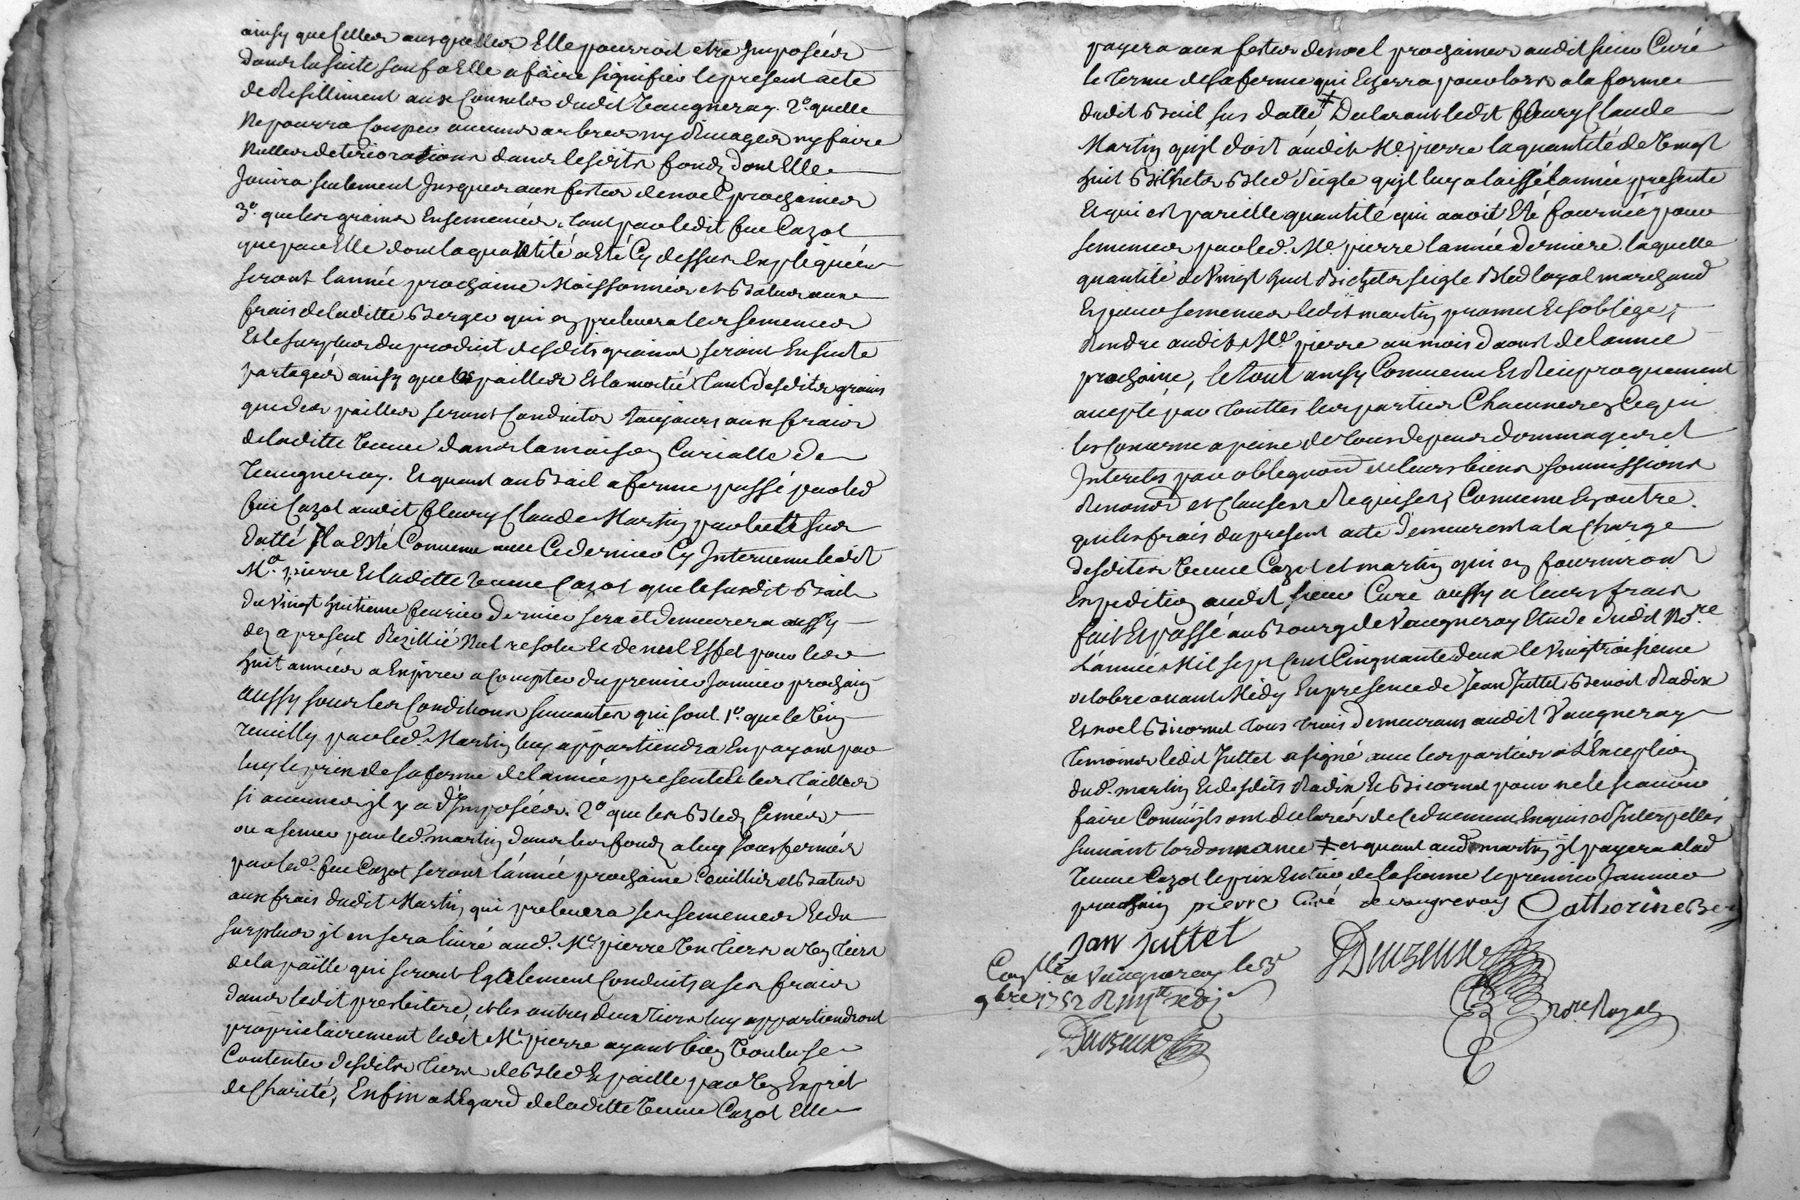 ainsy que Celles ausquelles Elle pourroit etre Imposées
dans la suite sauf a Elle a faire signifier le present acte
de Resilliment aux Consuls dudit Vaugneray. 2o. quelle
Ne pourra Couper aucuns arbres ny Dimager ny faire
Nulles deteriorations dans lesdits fonds dont Elle
Jouira seulement Jusques aux festes de noel prochaines
3o. que les grains Ensemencés, tant par ledit feu Cazot
que par Elle dont la quantité a Eté Cy dessus Expliquée
seront lannée prochaine Moissonnés et Batus aux
frais de laditte Berger qui en prelevera les semences
Et le surplus du produit desdits grains seront Ensuite
partagés ainsy que les pailles Et la moitié tant desdits grains
que des pailles seront Conduits toujours aux fraix
de laditte veuve dans la maison Curialle de
Vaugneray. Et quant au Bail a ferme passé par led
feu Cazot audit Fleury Claude Martin par acte sus
datté Il a Eté Convenu avec Ce dernier Cy Intervenu ledit
Me. pierre Et laditte veuve Cazot que le susdit Bail
du vingt huitieme fevrier dernier sera et demeurera aussy
dez a present Rezillié Nul resolu Et de nul Effet pour les
huit années a Expirer a Compter du premier Janvier prochain
aussy sous les Conditions suivantes qui sont 1o. que le vin
receuilly par led. Martin luy appartiendra En payant par
luy le prix de sa ferme de lannée presente Et les tailles
si aucunes il y a d'Imposées. 2o que les Bleds semés
ou a semer par led. martin dans les fonds a luy sousfermés
par led. feu Cazot seront l'année prochaine Ceuillis et Batus
aux frais dudit Martin qui prelevera ses semences Et du
surplus il en sera livré aud. Me. pierre un tiers et un tiers
de la paille qui seront Egalement Conduits a ses fraix
dans ledit presbitere, et les autres deux tiers luy appartiendront
proprietairement ledit Me. pierre ayant bien voulu se
Contenter desdits tiers de Bled Et paille par un Esprit
de Charité, Enfin a l'Egard de laditte veuve Cazot Elle
payera aux festes de noel prochaines audit sieur Curé
le terme de sa ferme qui Echerra pour lors a la forme
dudit Bail sus datté ‡ Declarant ledit Fleury Claude
Martin qu'il doit audit Me. pierre la quantité de vingt
huit Bichets Bled seigle qu'il luy a laissé lannée presente
Et qui est pareille quantité qui avoit Eté fournie pour
semences par led. Me. pierre lannée derniere. laquelle
quantité de vingt huit Bichets seigle Bled loyal marchand
Et pour semences ledit martin promet Et s'oblige,
Rendre audit Me. pierre au mois d'aoust de lannée
prochaine, le tout ainsy Convenu Et Reciproquement
accepté par touttes les parties Chacune en Ce qui
les Concerne a peine de tous depens dommages et
Interets par obligaon de leurs biens soumissions
Renonons et Clauses Requises; Convenu En outre
que les frais du present acte demeurent a la Charge
desdites veuve Cazot et martin qui en fourniront
Expedition audit sieur Curé aussy a leurs frais
fait Et passé au Bourg de Vaugneray Etude dudit Nore
L'année Mil sept Cent Cinquante deux le vingt troisieme
octobre avant Midy En presence de Jean Juttet, Benoit Radix
Et noel Bicornet tous trois demeurans audit Vaugneray
temoins ledit Juttet a signé avec les parties a l'Exception
dud. martin Et desdits Radix Et Bicornet pour ne le scavoir
faire Comm'ils ont declarés de Ce duement Enquis et Interpellés
suivant lordonnance ‡ et quant aud martin il payera a lad
veuve Cazot le prix Entier de la sienne le premier Janvier
prochain pierre Curé de vaugneray Catherine Ber
Jan juttet
Conllé a Vaugneray le 3e
9bre 1752 R
Nore Royal